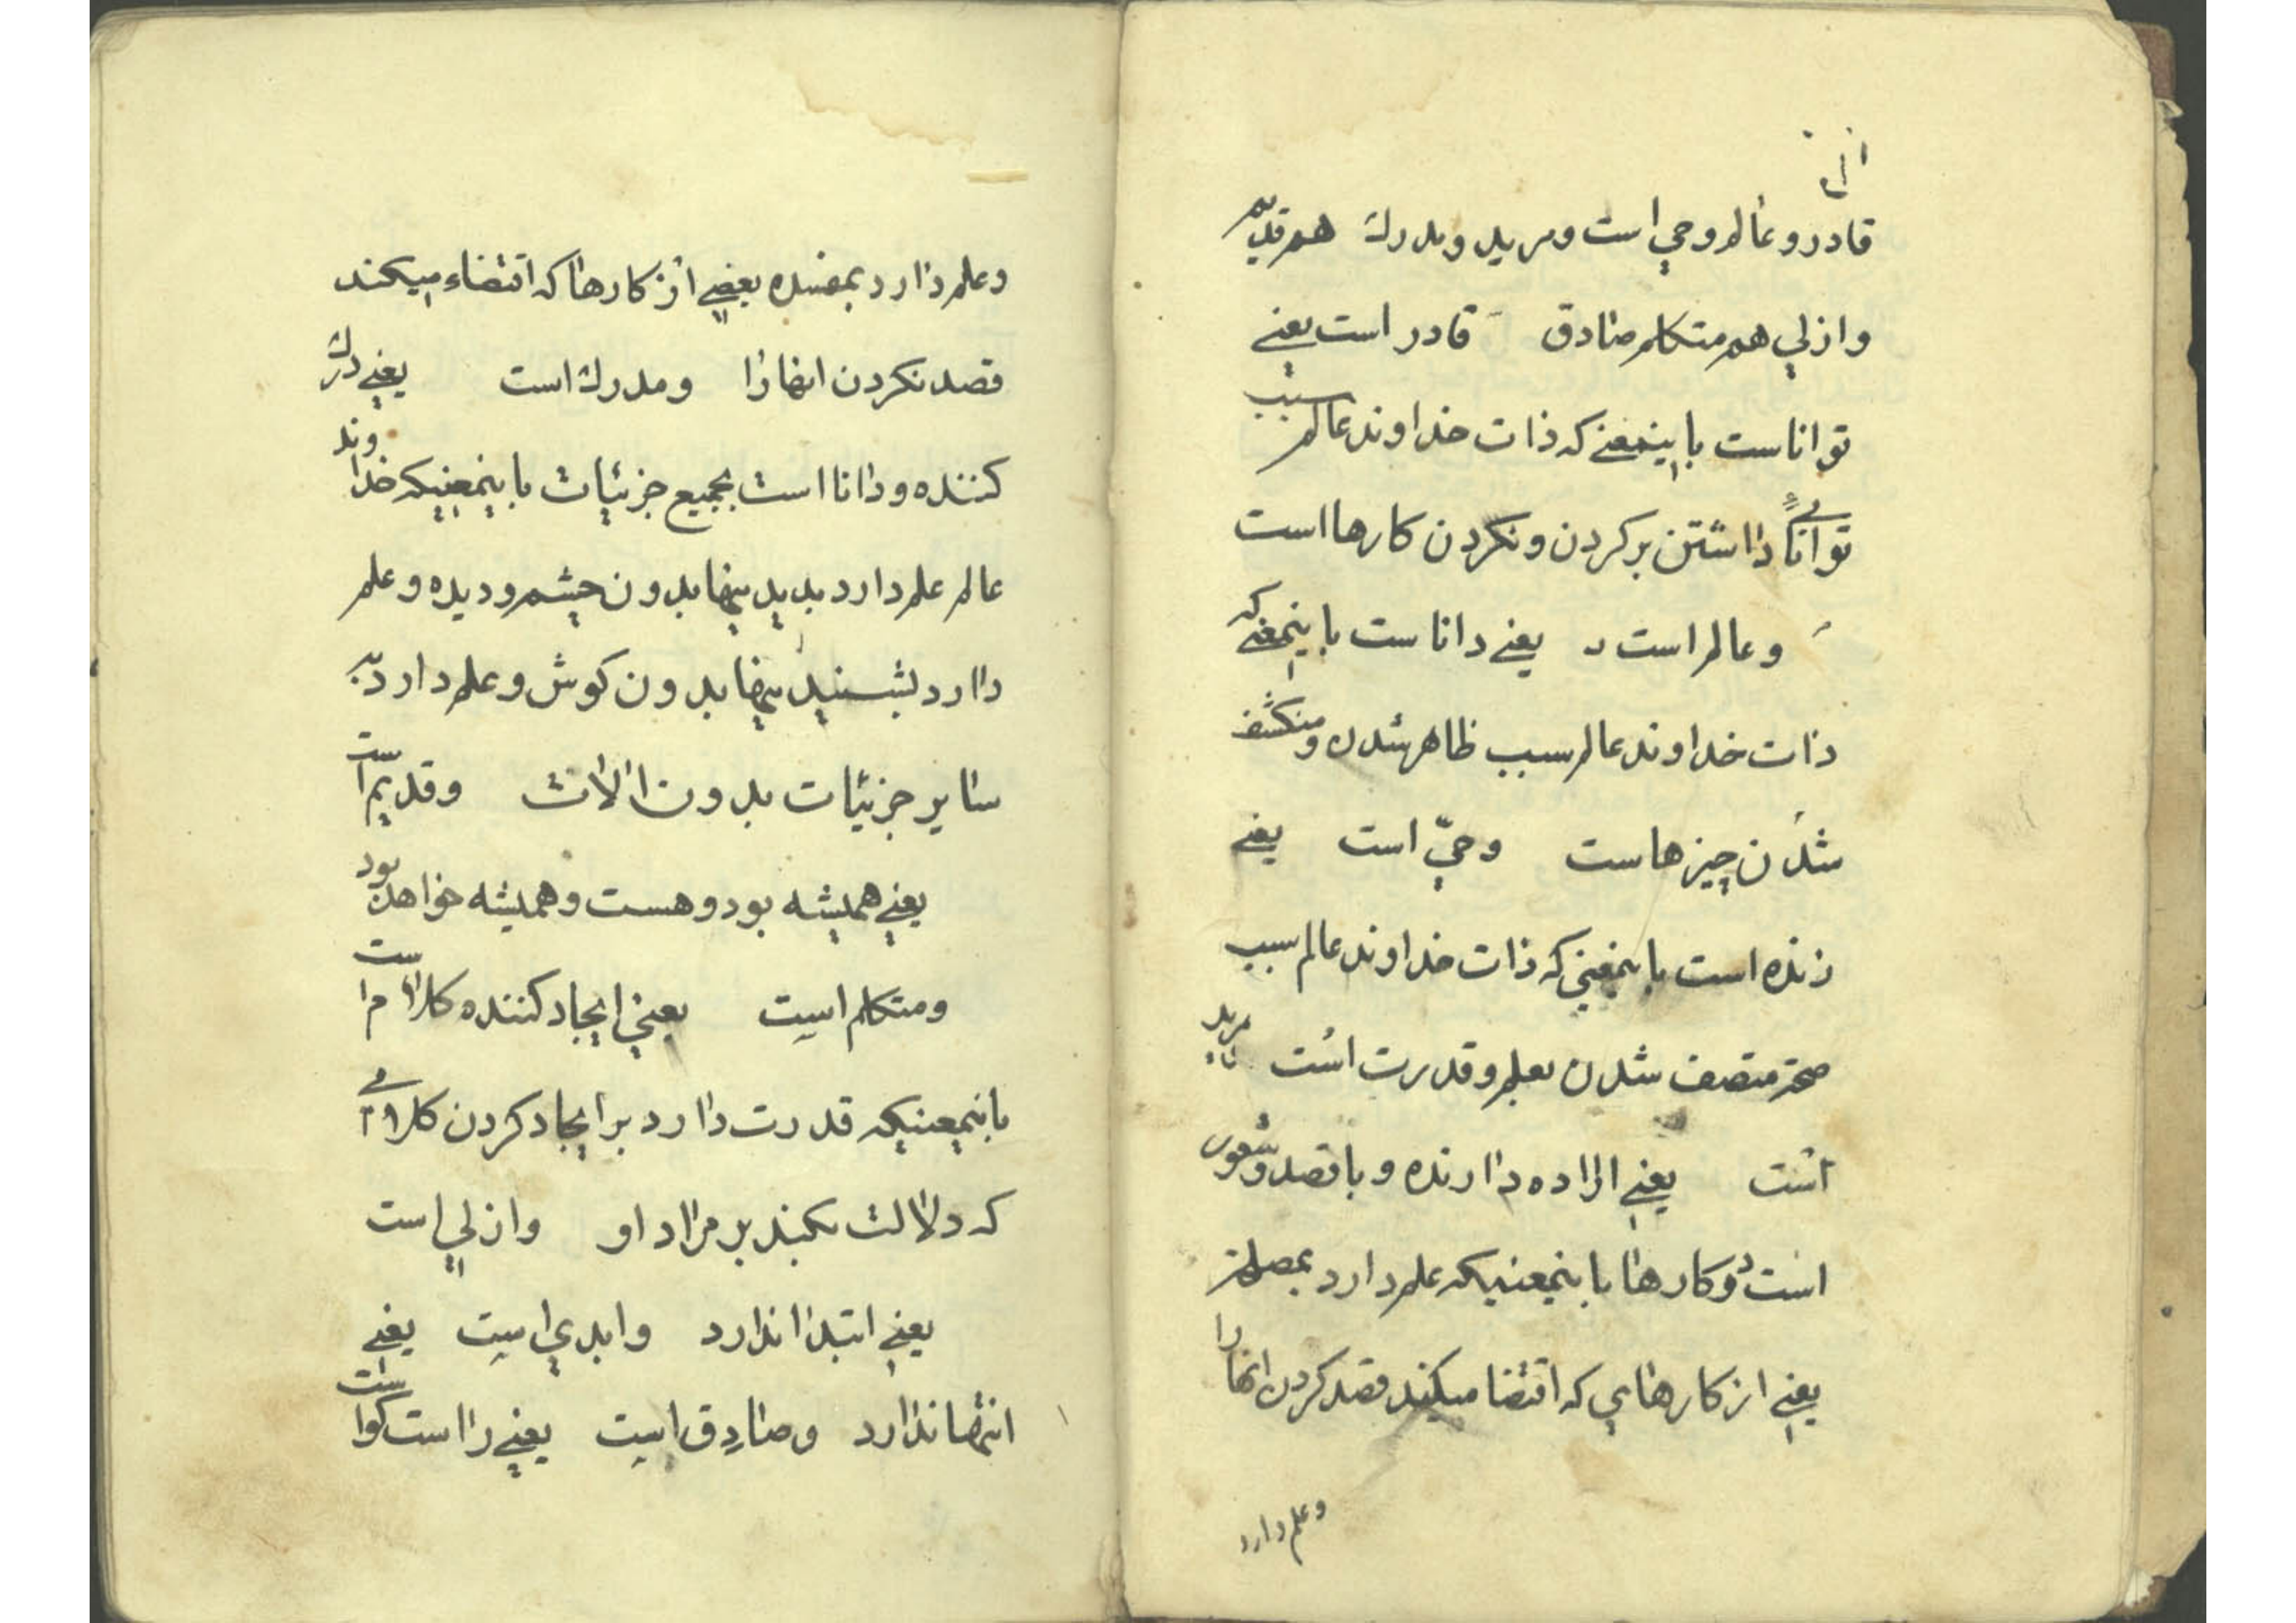 قادر و عالم و حي است و مريد و مدرك هم قديم
و ازلي هم متكلم صادق قادر است يعني
تواناست باينمعني كه ذات خداوند عالم سبب
توانائي داشتن بر كردن و نكردن كارها است
و عالم است يعني داناست باينمعني كه
ذات خداوند عالم سبب ظاهر شدن و منكشف
شدن چيزهاست و حيّ است يعني
زنده است باينمعني كه ذات خداوند عالم سبب
صحة متصف شدن بعلم و قدرت است مريد
است يعني اراده دارنده و با قصد و شعور
است در كارها باينمعنيكه علم دارد بمصلحة
يعني از كارهاي كه اقتضا ميكند قصد كردن انها را
و علم دارد
و علم دارد بمفسده بعضي از كارها كه اقتضاء ميكند
قصد نكردن انها را و مدرك است يعني درك
كننده و دانا است بجميع جزئيات باينمعنيكه خداوند
عالم علم دارد بديدنيها بدون چشم و ديده و علم
دارد بشنيدنيها بدون كوش و علم دارد به
ساير جزئيات بدون الات و قديم است
يعني هميشه بود و هست و هميشه خواهد بود
و متكلم است يعني ايجاد كننده كلام است
باينمعنيكه قدرت دارد بر ايجاد كردن كلامي
كه دلالت بكند بر مراد او و ازلي است
يعني ابتدا ندارد و ابدي است يعني
انتها ندارد و صادق است يعني راست كوا ست